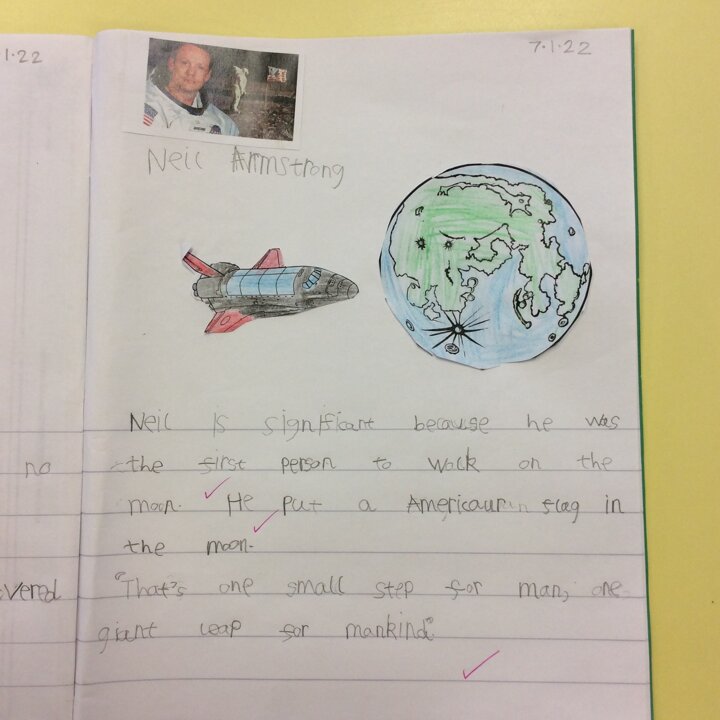 1.22
7.1.22
Neil Armstrong
Neil is significant because he was
no
the first person to walk on the
moon. He put a Americaurin flag in
the moon.
vered
"That's one small step for man, one
giant leap for mankind."